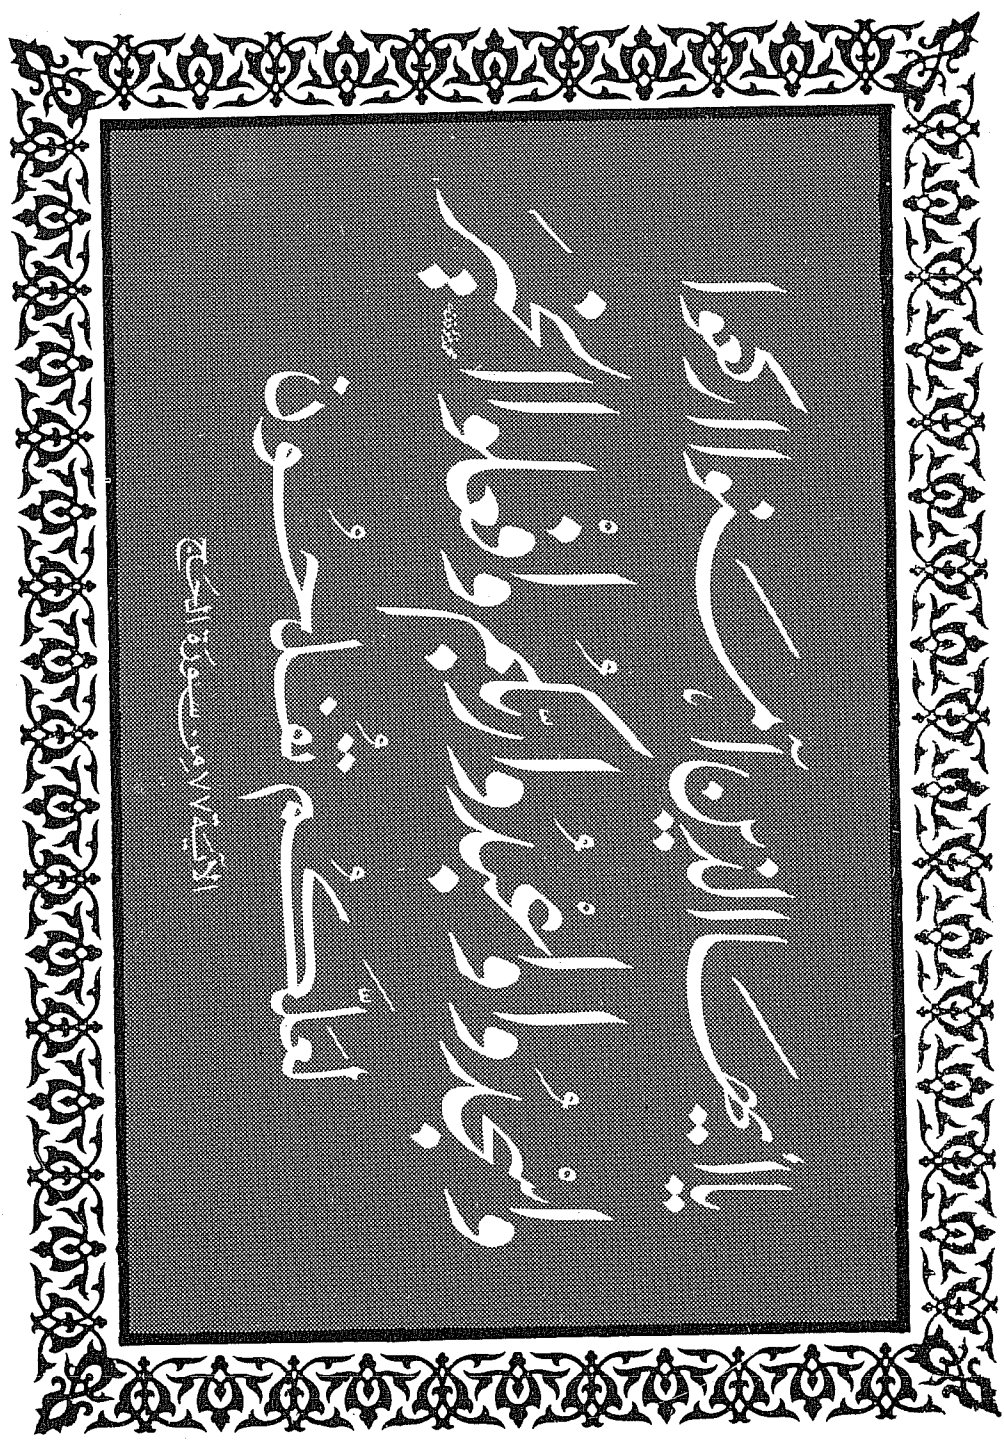 يا أيها الذين آمنوا اركعوا
واسْجُدوا واعْبُدوا ربّكُم وافْعلوا الخَير
لعَلَّكُم تُفلحُون
الآية ٧٧ من سورة الحج